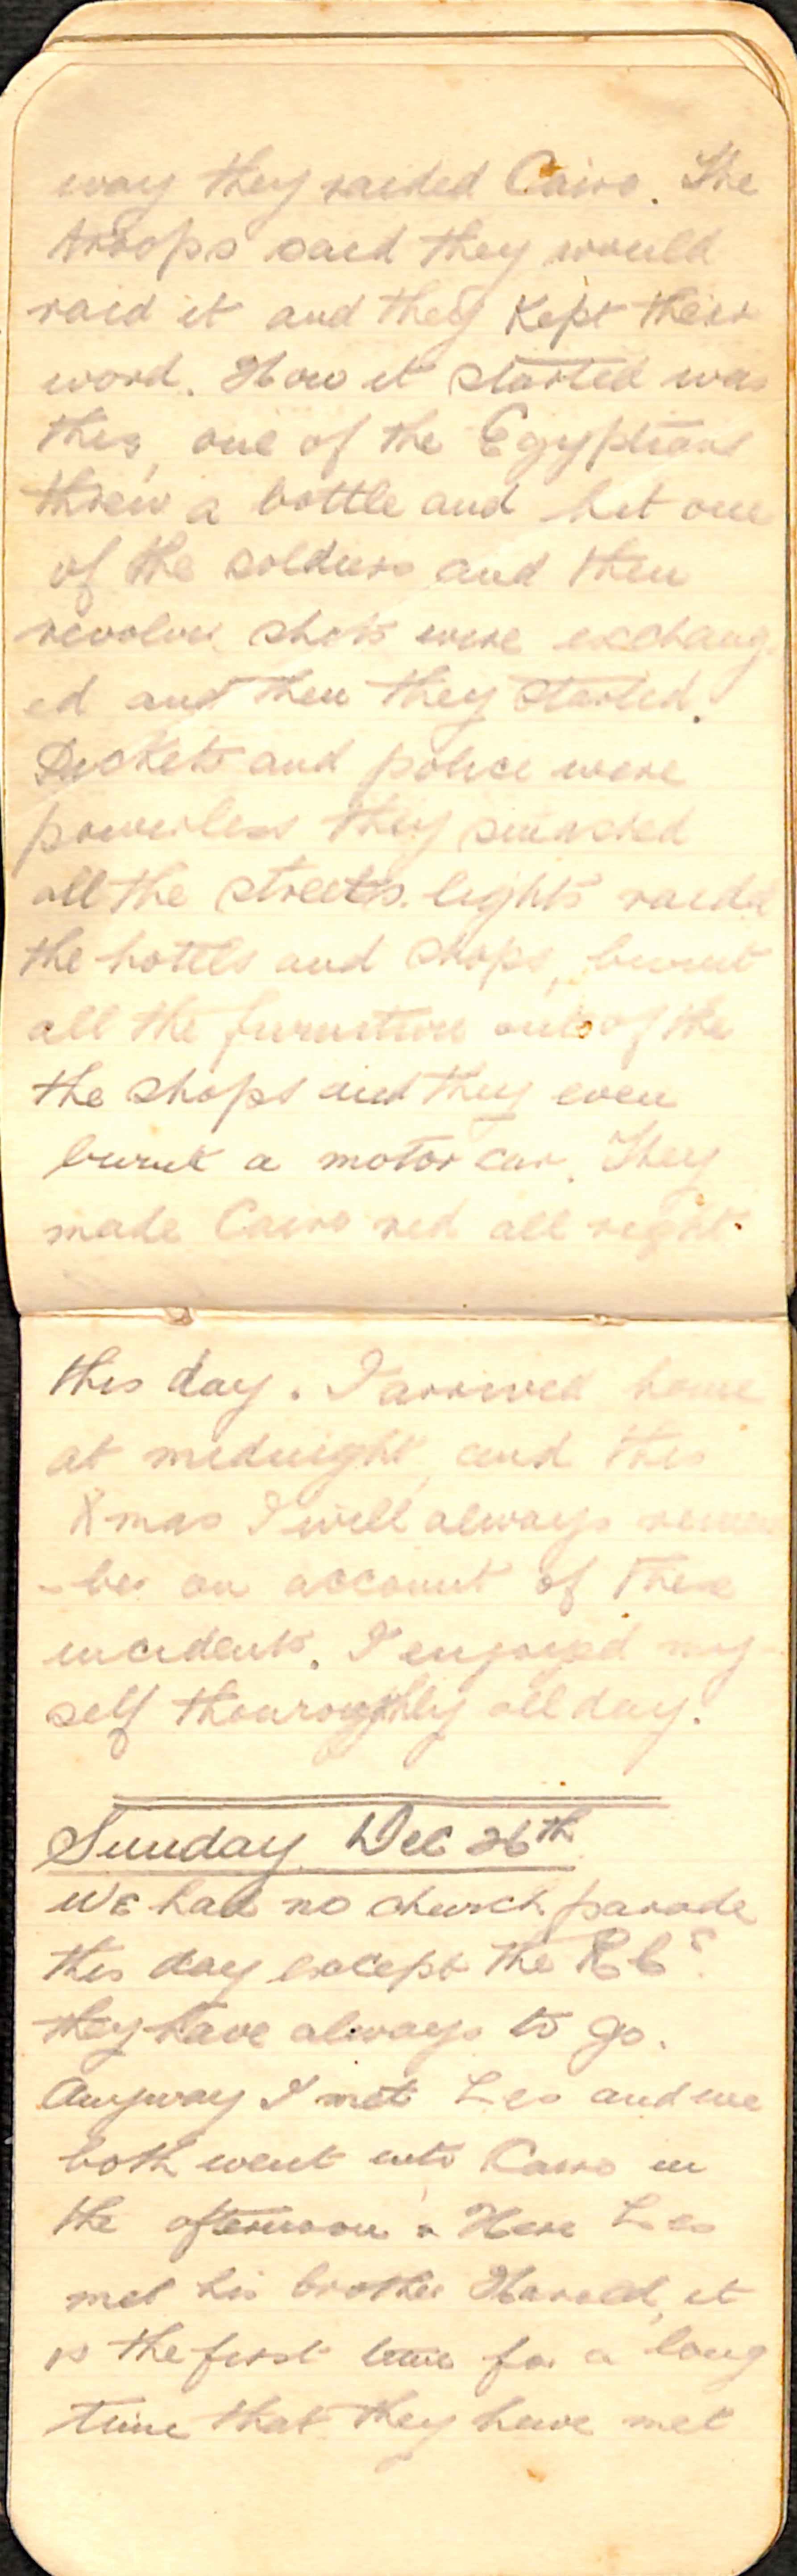 way they raided Cairo. The
troops said they would
raid it and they kept their
word. How it started was
this, one of the Egyptians
threw a bottle and hit one
of the soldiers and then
revolver shots were exchang
ed and then they started.
Pickets and police were
powerless they smashed
all the streets lights raided
the hotels and shops, burnt
all the furniture outs of the
the shops and they even
burnt a motor car. They
made Cairo red all right
this day. I arrived home
at midnight, and this
Xmas I will always remem
-ber on account of these
incidents. I enjoyed my-
self thouroughly all day.
Sunday Dec 26th
We had no church parade
this day except the RCs.
they have always to go.
Anyway I met Les and we
both went into Cairo in
the afternoon. Here Les
met his brother Harold, it
is the first time for a long
time that they have met